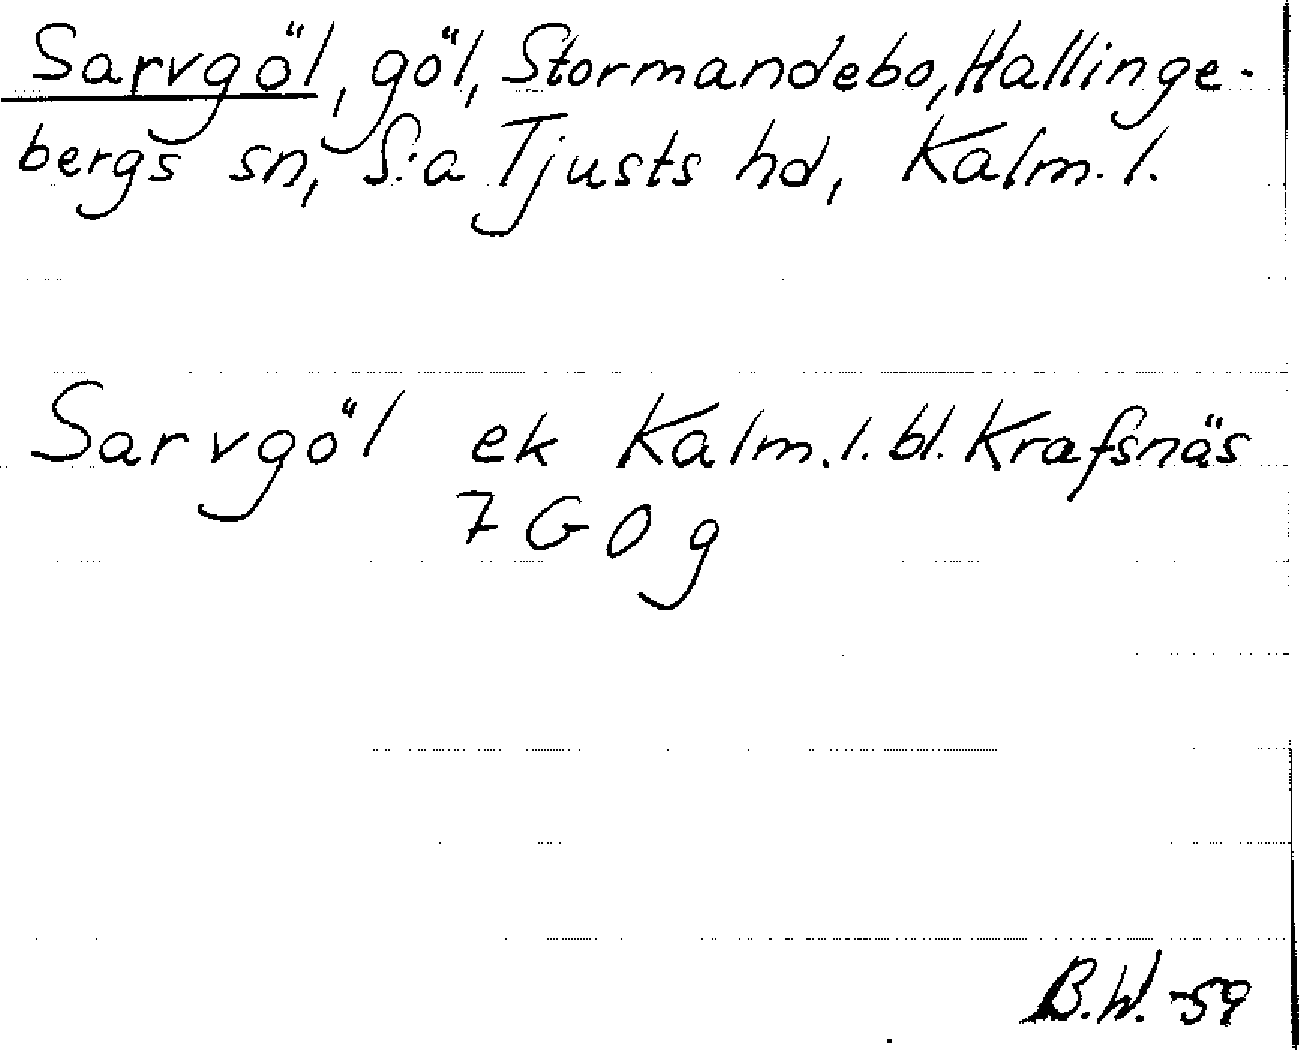 Sarvgöl, göl, Stormandebo, Hallinge-
bergs sn, S:a Tjusts hd, Kalm. l.
Sarvgöl ek Kalm. l. bl. Krafsnäs
7 G 0 g
B.W. -59